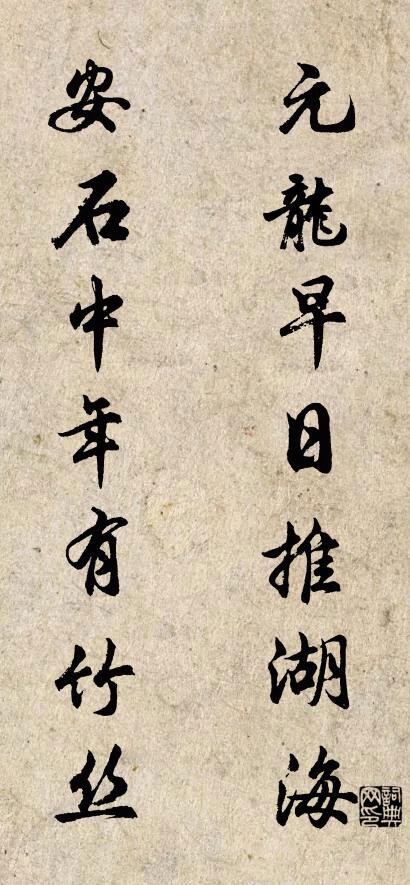 元龍早日推湖海
安石中年有竹丝
詞典网印